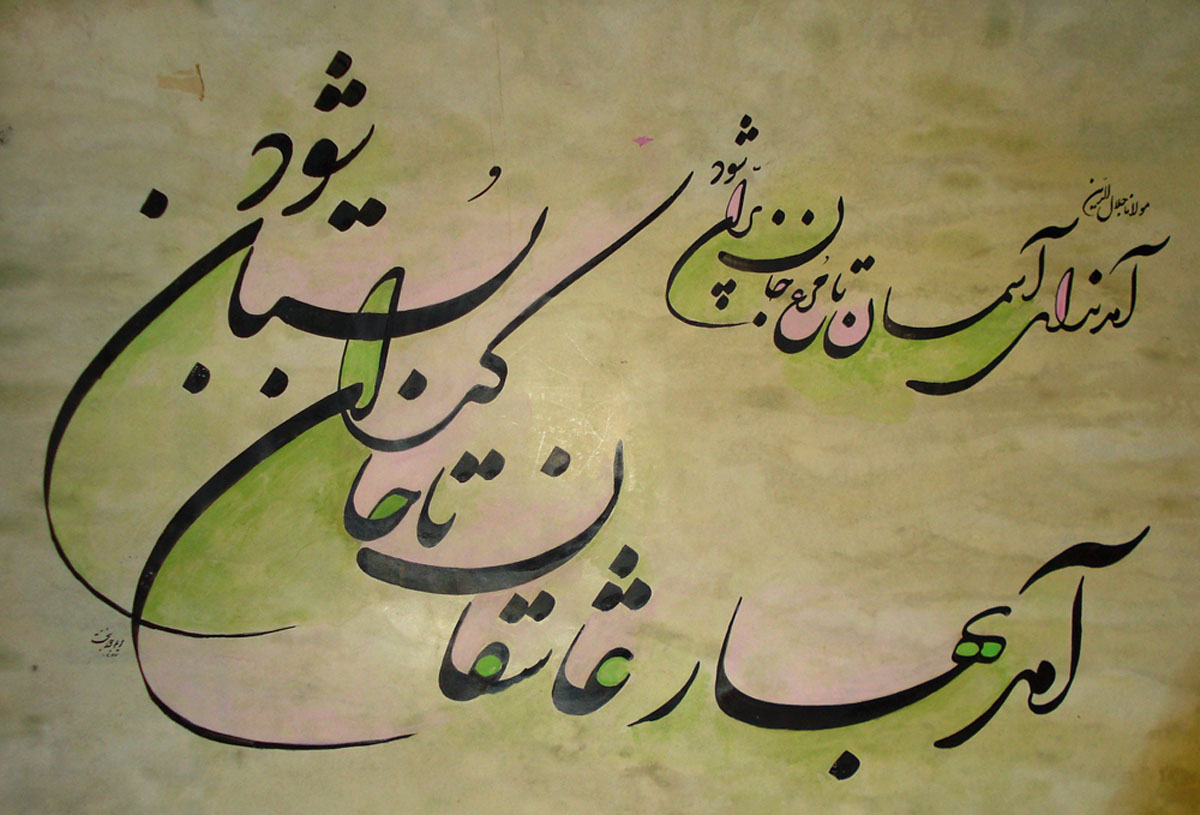 مولانا جلال الدین
آمد ندای آسمان تا مرغ جان پرّان شود
آمد بهار عاشقان تا خاکدان بستان شود